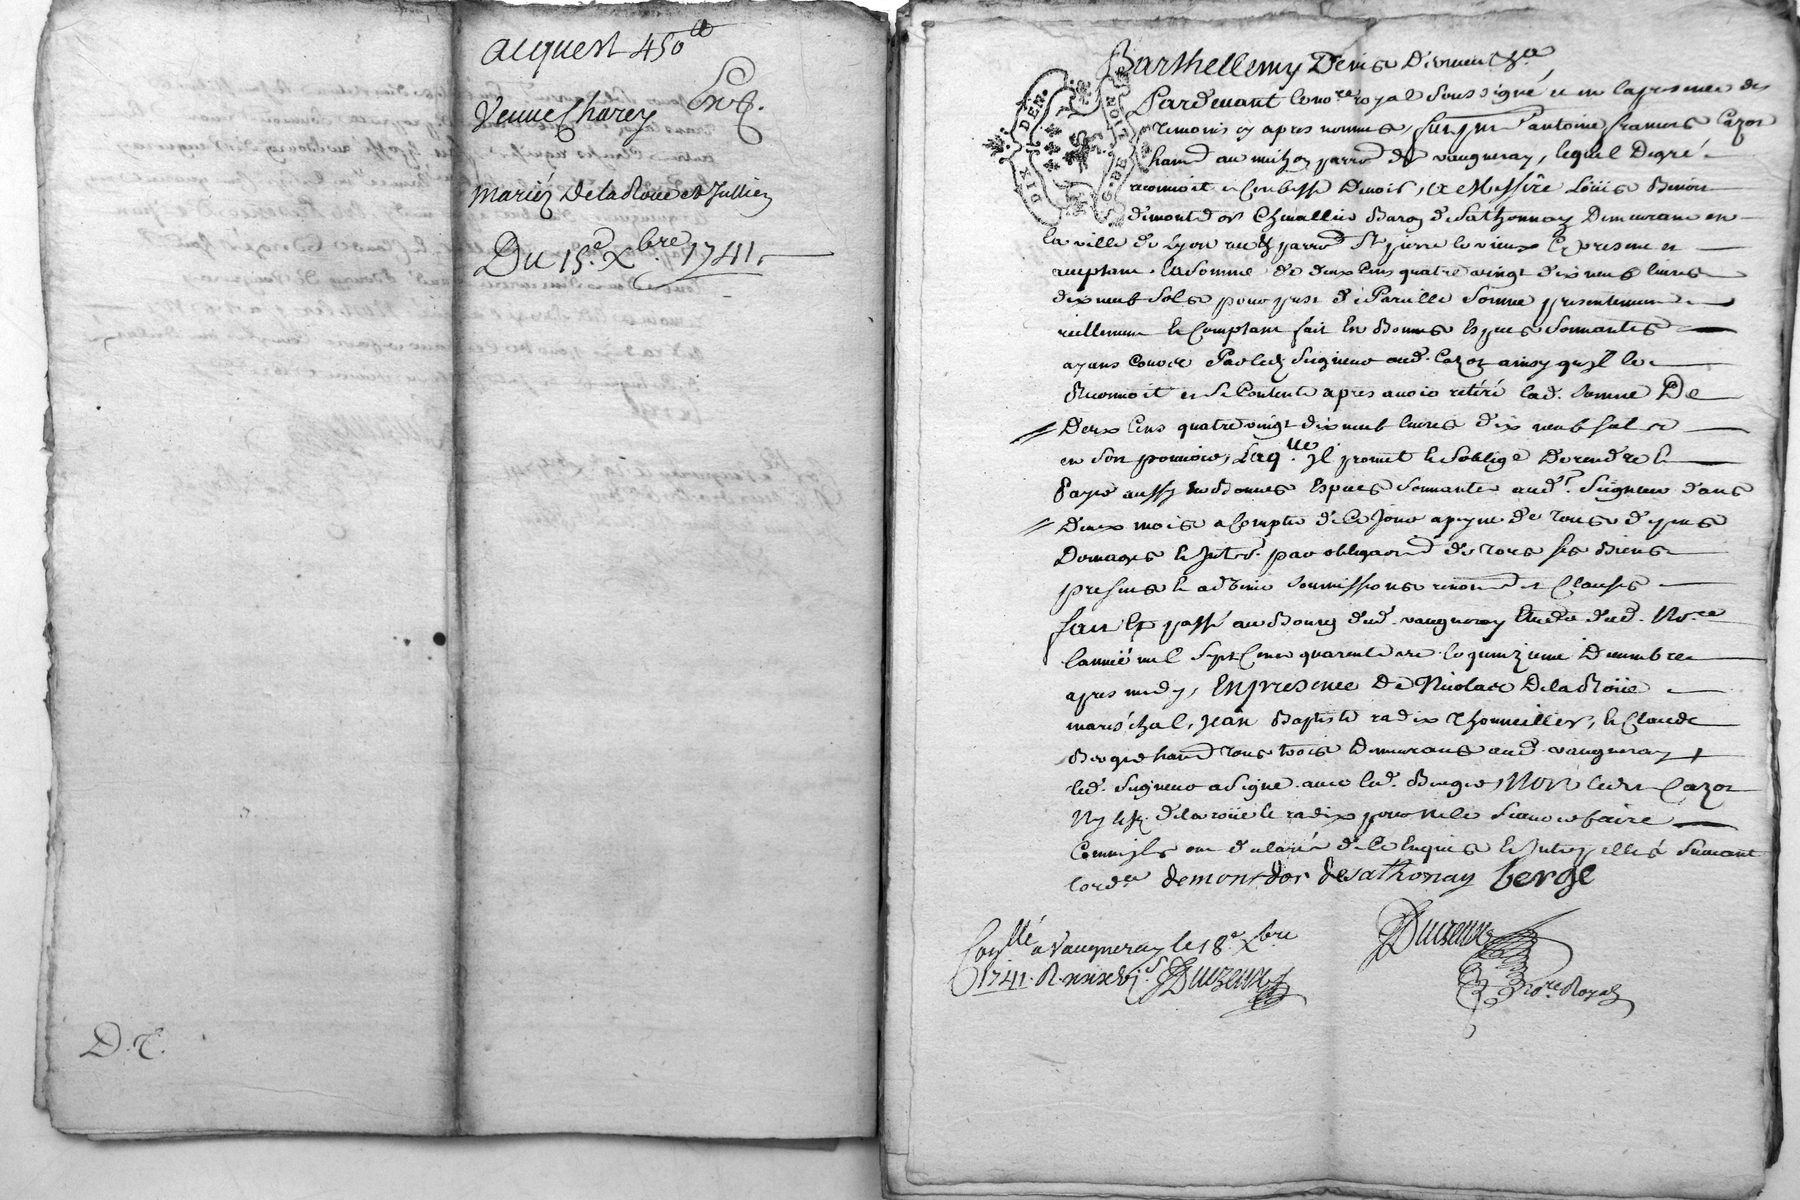 acquest 450ᵗᵗ
Exp.
Veuve Charey
Mariéz Delaroue et Jullien
Du 15.ᵉ Xbre. 1741.
D.T.
DIX DEN.
G. DE LION
Barthellemy Denis
Pardevant le no.re royal soussigné et en la presence des
temoins cy apres nommés, fut pnt antoine françois Cazot
hand au parro de vaugneray, lequel de gré
reconnoit et Confesse devoir, a Messire Loüis Benoit
demontdor Chevallier Baron de Sathonnay Demeurant en
la ville de Lyon rue et parro St pierre le vieux cy present et
acceptant. la somme de deux Cens quatre vingt dix neuf livres
dix neuf sols pour prest de Pareille somme presentement
reellement et Comptant fait En Bonnes Especes sonnantes
ayans Cours Par led Seigneur aud. Cazot ainsy qu'il le
Reconnoit et se Contente apres avoir retiré lad. somme De
Deux Cens quatre vingt dix neuf livres dix neuf sols
en son pouvoir, Laq.lle Jl promet et s'oblige De rendre et
Payer aussy en Bonnes Especes sonnantes aud. Seigneur dans
Deux mois a Compter de Ce Jour a peyne de tous depens
Domages et Jnter. par obligaon de tous ses Biens
presens et advenir soumissions renon et Clauses
fait et passé au Bourg dud. vaugneray Etude dud. No.re
l'année mil sept Cens quarente un le quinzieme Decembre
apres midy, En presence de Nicolas Delaroüe
maréchal, Jean Baptiste radix Thonnellier, et Claude
Berge hand tous trois Demeurans aud. vaugneray
led. Seigneur a signé avec led. Berge, Non ledit Cazot
Ny lesd. delaroüe et radix pour ne le scavoir faire
Comme ils ont declaré de Ce Enquis et Jnterpellés suivant
l'ord.ce demontdor desathonay berge
Conllé a Vaugneray le 18e Xbre
1741. R. Duzeux
Duzeux
No.re Royal